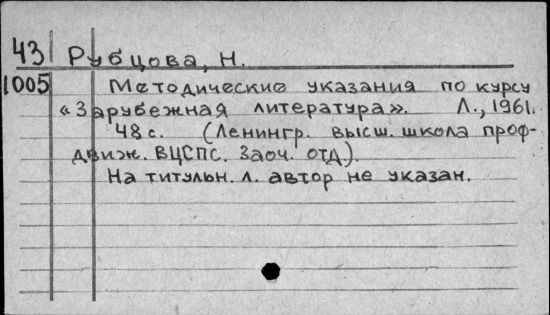 43 Рубцова, Н.
1005 Методические указания по курсу
«Зарубежная литература». Л., 1961.
48 с. (Ленингр. высш. школа проф-
движ. ВЦСПС. Заоч. отд.).
На титульн. л. автор не указан.